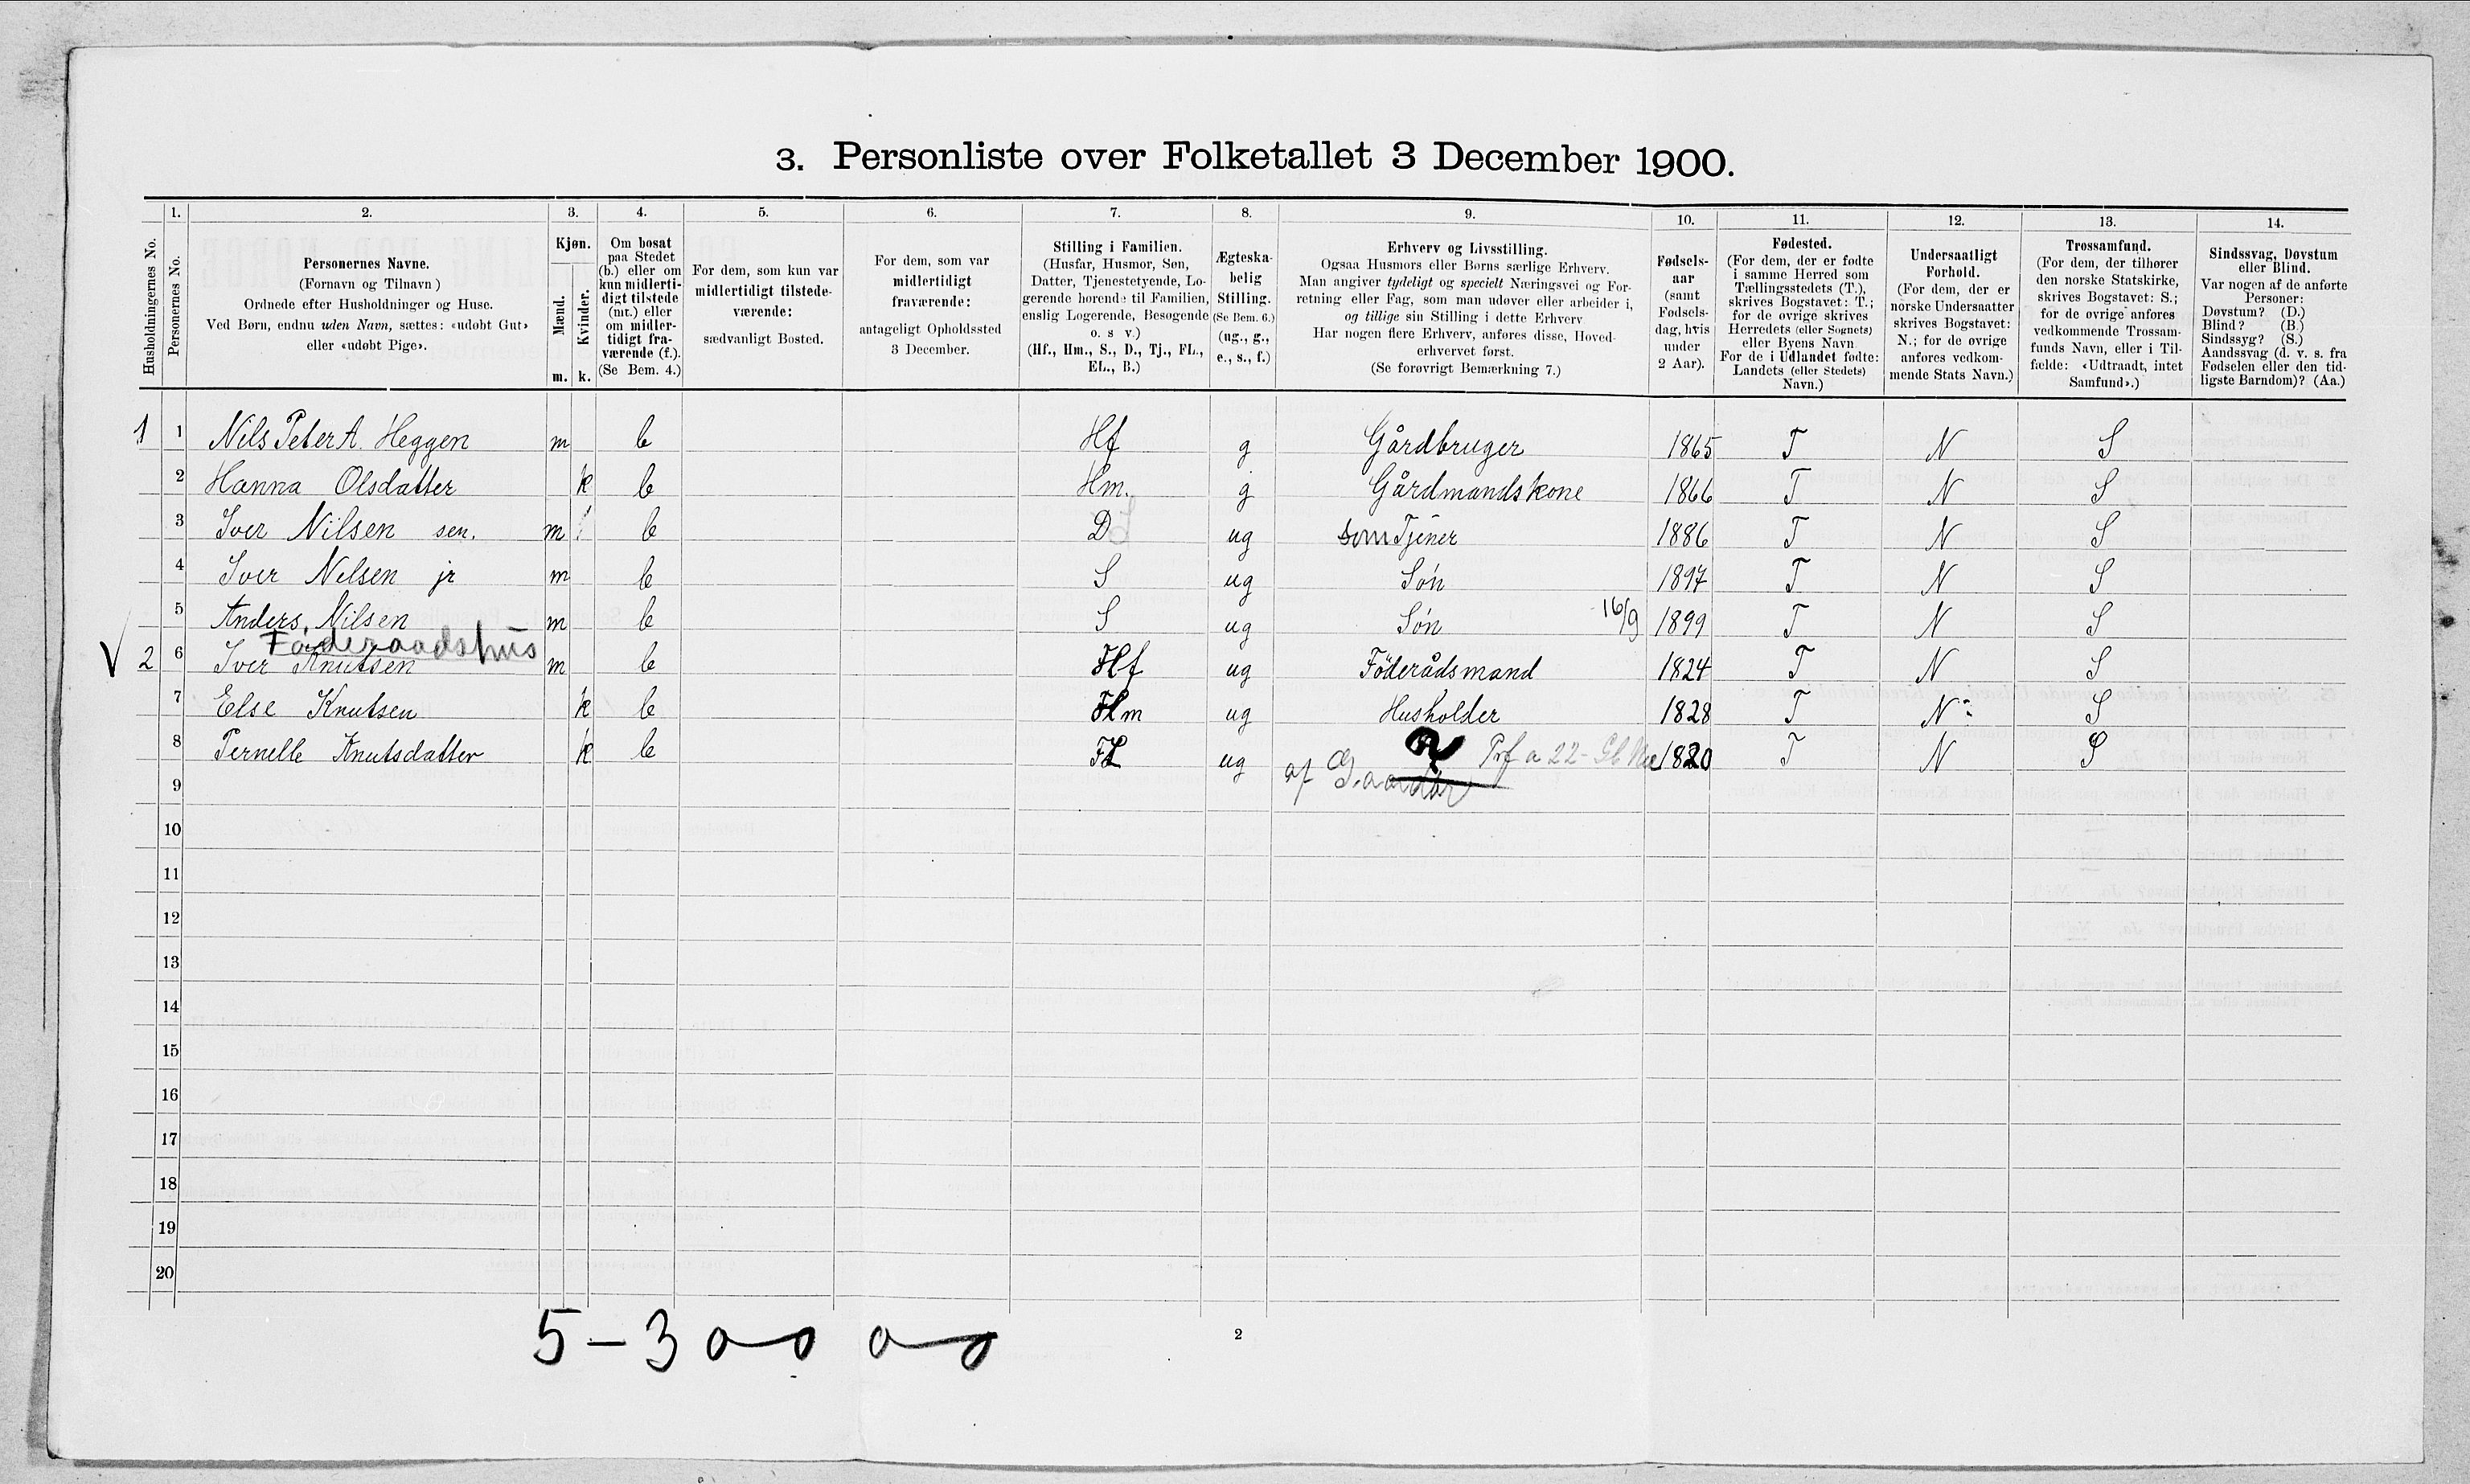 3. Personliste over Folketallet 3 December 1900.
Husholdningernes No.
1.
Personernes No.
2.
Personernes Navne.
(Fornavn og Tilnavn)
Ordnede efter Husholdninger og Huse.
Ved Børn, endnu uden Navn, sættes: «udøbt Gut»
eller «udøbt Pige».
3.
Kjøn.
Mænd.
Kvinder.
m. k.
4.
Om bosat
paa Stedet
(b.) eller om
kun midlerti-
digt tilstede
(mt.) eller
om midler-
tidigt fra-
værende (f.).
(Se Bem. 4.)
5.
For dem, som kun var
midlertidigt tilstede-
værende:
sædvanligt Bosted.
6.
For dem, som var
midlertidigt
fraværende:
antageligt Opholdssted
3 December.
7.
Stilling i Familien.
(Husfar, Husmor, Søn,
Datter, Tjenestetyende, Lo-
gerende hørende til Familien,
enslig Logerende, Besøgende
o. s v.)
(Hf., Hm., S., D., Tj., FL.,
EL., B.)
8.
Ægteska-
belig
Stilling.
(Se Bem. 6.)
(ug., g.,
e., s., f.)
9.
Erhverv og Livsstilling.
Ogsaa Husmors eller Børns særlige Erhverv.
Man angiver tydeligt og specielt Næringsvei og For-
retning eller Fag, som man udøver eller arbeider i,
og tillige sin Stilling i dette Erhverv
Har nogen flere Erhverv, anføres disse, Hoved-
erhvervet først.
(Se forøvrigt Bemærkning 7.)
10.
Fødsels-
aar
(samt
Fødsels-
dag, hvis
under
2 Aar).
11.
Fødested.
(For dem, der er fødte
i samme Herred som
Tællingsstedets (T.),
skrives Bogstavet: T.;
for de øvrige skrives
Herredets (eller Sognets)
eller Byens Navn
For de i Udlandet fødte:
Landets (eller Stedets)
Navn.)
12.
Undersaatligt
Forhold.
(For dem, der er
norske Undersaatter
skrives Bogstavet:
N.; for de øvrige
anføres vedkom-
mende Stats Navn.)
13.
Trossamfund.
(For dem, der tilhører
den norske Statskirke,
skrives Bogstavet: S.;
for de øvrige anføres
vedkommende Trossam-
funds Navn, eller i Til-
fælde: «Udtraadt, intet
Samfund».)
14.
Sindssvag, Døvstum
eller Blind.
Var nogen af de anførte
Personer:
Døvstum? (D.)
Blind? (B.)
Sindssyg? (S.)
Aandssvag (d. v. s. fra
Fødselen eller den tid-
ligste Barndom)? (Aa.)
1 1 Nils Peter A. Heggen m b Hf g Gårdbruger 1865 T N S
2 Hanna Olsdatter k b Hm. g Gårdmandskone 1866 T N S
3 Iver Nilsen sen. m b D ug som Tjener 1886 T N S
4 Iver Nilsen jr m b S ug Søn 1897 T N S
5 Anders Nilsen m b S ug Søn 16/9 1899 T N S
Føderaadshus
2 6 Iver Knutsen m b Hf ug Föderådsmand 1824 T N S
7 Else Knutsen k b Hm ug Husholder 1828 T N S
8 Pernelle Knutsdatter k b FL ug 1820 T N S
af Gaarden
9
10
11
12
13
14
15
16
17
18
19
20
5 – 3 0 0 0 0
2